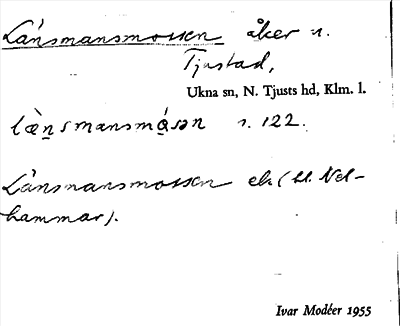 Länsmansmossen åker s.
Tjustad,
Ukna sn, N. Tjusts hd, Klm. l.
lä̀nsmansmåsən s. 122.
Länsmansmossen ek. (bl. Nel-
hammar).
Ivar Modéer 1955